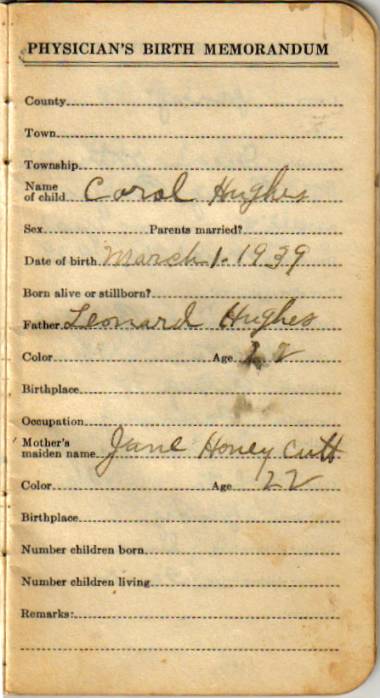 PHYSICIAN'S BIRTH MEMORANDUM
County
Town
Township
Name of child Carol Hughes
Sex Parents married?
Date of birth March 1. 1939
Born alive or stillborn?
Father Leonard Hughes
Color Age 22
Birthplace
Occupation
Mother's maiden name Jane Honey Cutt
Color Age 22
Birthplace
Number children born
Number children living
Remarks: